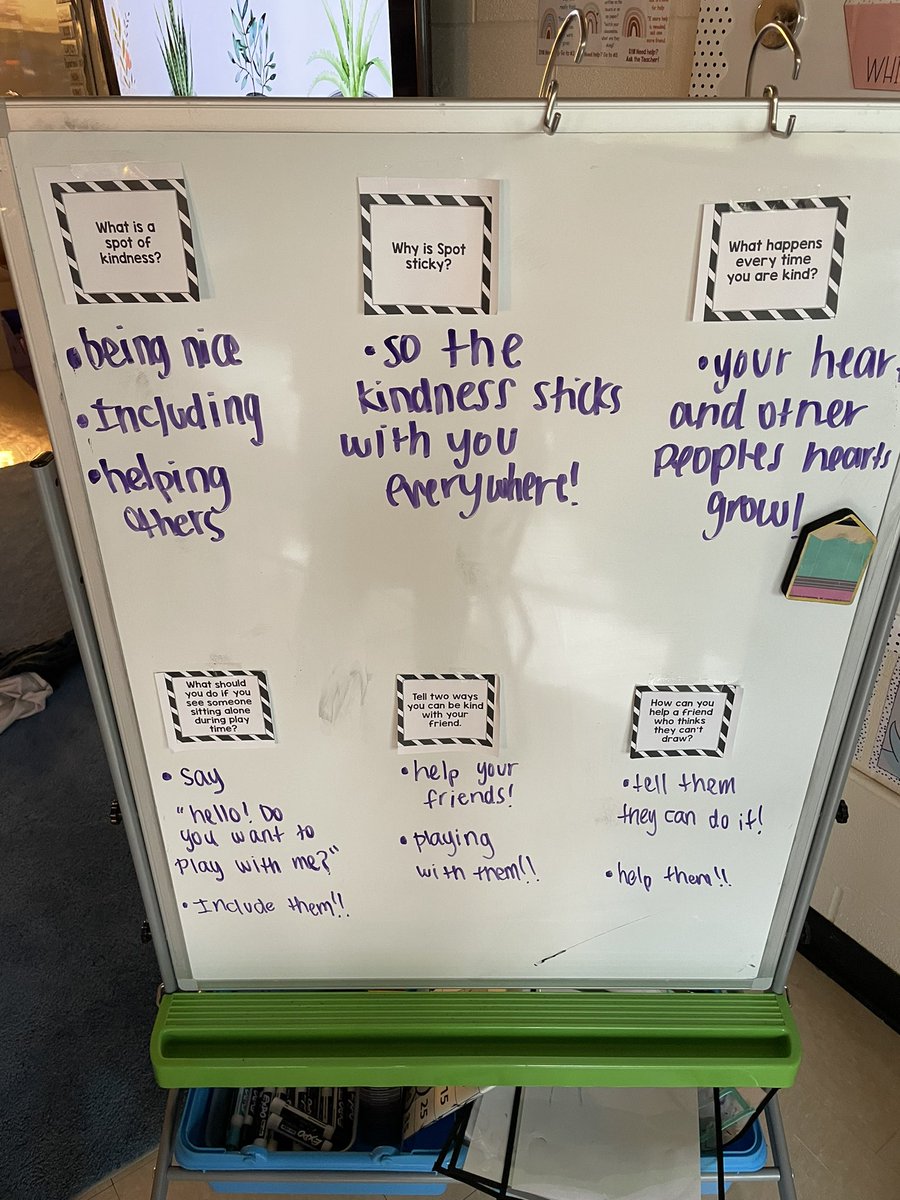 What is a
spot of
kindness?
• being nice
• Including
• helping
others
Why is Spot
sticky?
• so the
kindness sticks
with you
everywhere!
What happens
every time
you are kind?
• your hear
and other
peoples hearts
grow!
What should
you do if you
see someone
sitting alone
during play
time?
• say
"hello! Do
you want to
play with me?"
• Include them!!
Tell two ways
you can be kind
with your
friend.
• help your
friends!
• playing
with them!!
How can you
help a friend
who thinks
they can't
draw?
• tell them
they can do it!
• help them!!
Still need help?
Ask the Teacher!
WHI
EXPO
15
25